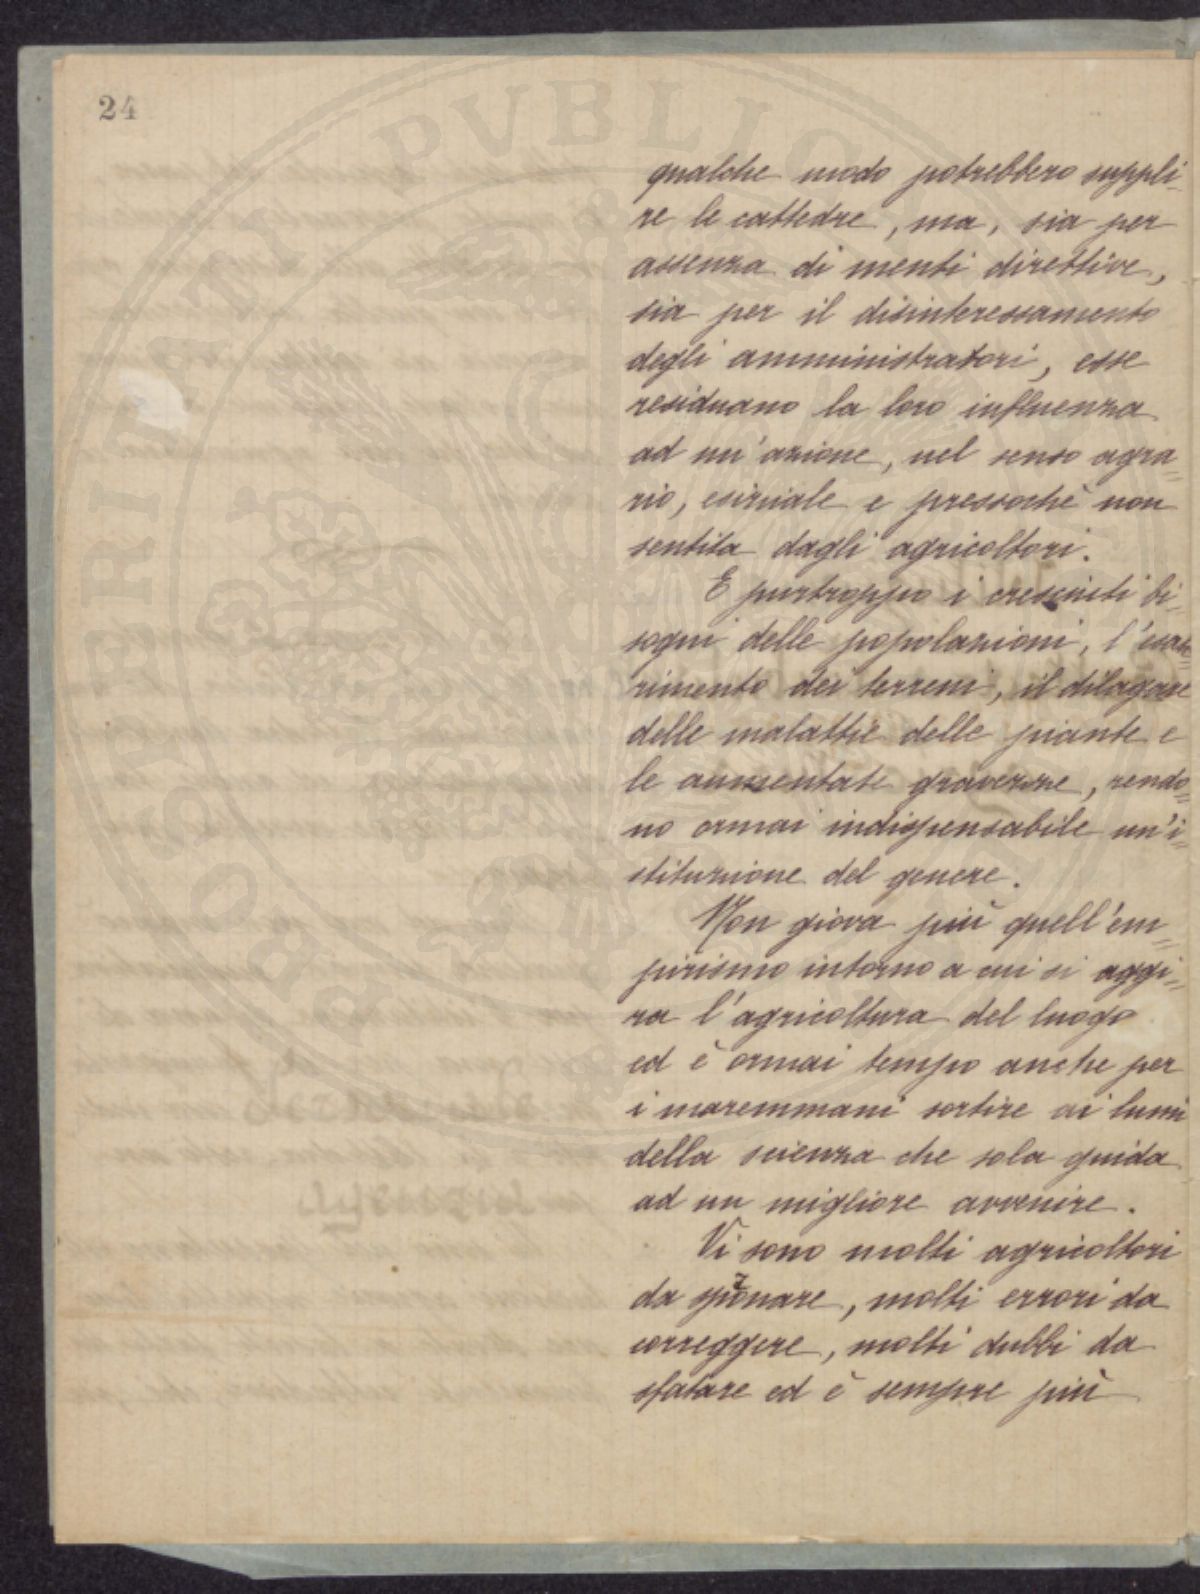 24
PVBLICA
PROSPERITATI
qualche modo potrebbero suppli-
re le cattedre, ma, sia per
assenza di menti direttive,
sia per il disinteressamento
degli amministratori, esse
residuano la loro influenza
ad un'azione, nel senso agra=
rio, esiziale e pressochè non
sentita dagli agricoltori.
E purtroppo i cresciuti bi-
sogni delle popolazioni, l'esau=
rimento dei terreni, il dilagare
delle malattie delle piante e
le aumentate gravezze, rendo=
no ormai indispensabile un'i=
stituzione del genere.
Non giova più quell'em=
pirismo intorno a cui si aggi=
ra l'agricoltura del luogo
ed è ormai tempo anche per
i maremmani sortire ai lumi
della scienza che sola guida
ad un migliore avvenire.
Vi sono molti agricoltori
da spronare, molti errori da
correggere, molti dubbi da
sfatare ed è sempre più